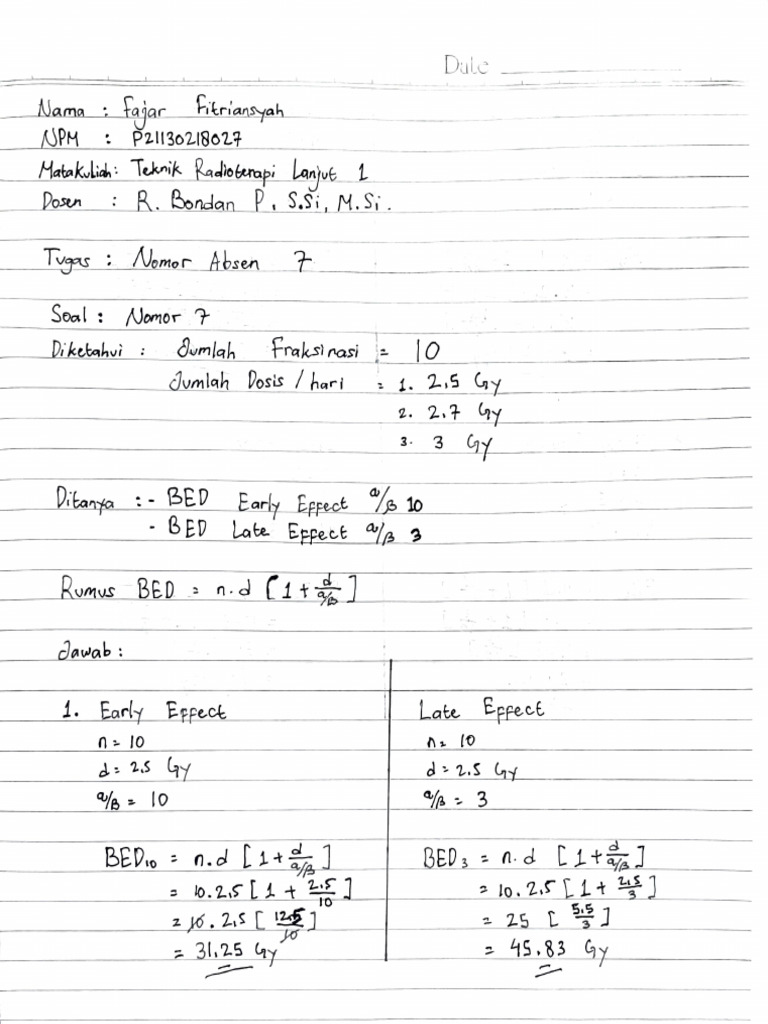 Date
Nama : Fajar Fitriansyah
NPM : P21130218027
Matakuliah : Teknik Radioterapi Lanjut 1
Dosen : R. Bondan P, S.Si, M.Si.
Tugas : Nomor Absen 7
Soal : Nomor 7
Diketahui : Jumlah Fraksinasi = 10
Jumlah Dosis / hari = 1. 2,5 Gy
2. 2.7 Gy
3. 3 Gy
Ditanya : - BED Early Effect α/β 10
- BED Late Effect α/β 3
Rumus BED = n.d [1 + d/α/β]
Jawab :
1. Early Effect
n = 10
d = 2.5 Gy
α/β = 10
BED10 = n.d [1 + d/α/β]
= 10.2,5 [1 + 2.5/10]
= 10.2,5 [12.5/10]
= 31,25 Gy
Late Effect
n = 10
d = 2.5 Gy
α/β = 3
BED3 = n.d [1 + d/α/β]
= 10.2,5 [1 + 2,5/3]
= 25 [5.5/3]
= 45.83 Gy